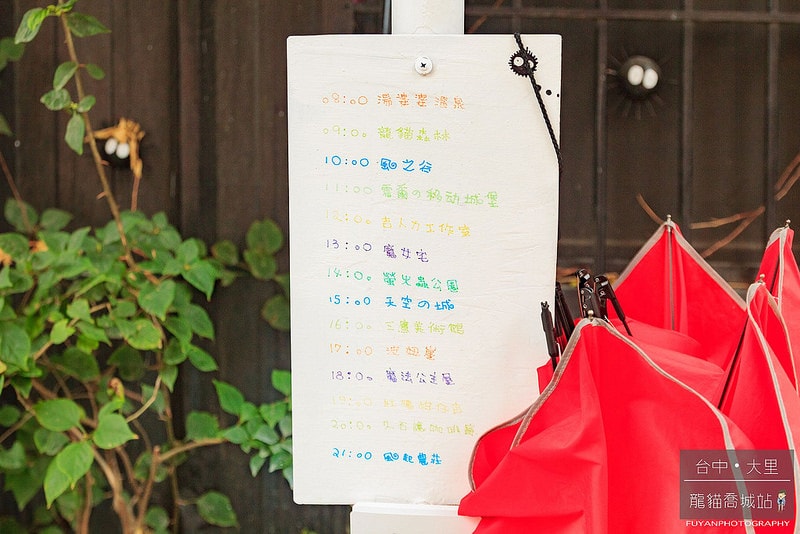 08:00 湯婆婆溫泉
09:00 龍貓森林
10:00 風之谷
11:00 霍爾の移动城堡
12:00 吉卜力工作室
13:00 魔女宅
14:00 螢火蟲公園
15:00 天空の城
16:00 三鷹美術館
17:00 波妞屋
18:00 魔法公主屋
19:00
20:00 咖啡館
21:00 風起農莊
台中・大里
龍貓喬城站
FUYANPHOTOGRAPHY